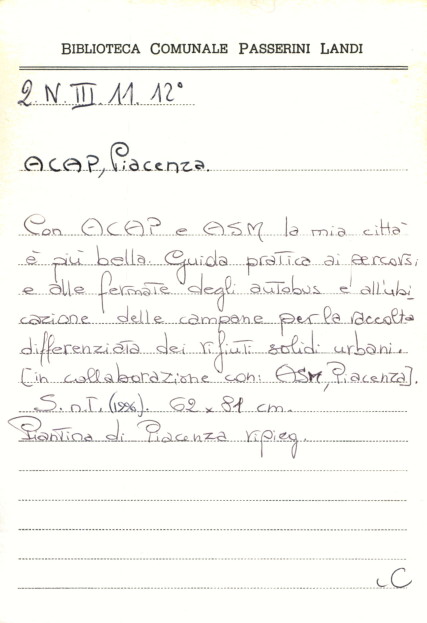 BIBLIOTECA COMUNALE PASSERINI LANDI
2. N. III. 11. 12°
ACAP, Piacenza.
Con ACAP e ASM la mia città
è più bella. Guida pratica ai percorsi
e alle fermate degli autobus e all'ubi
cazione delle campane per la raccolta
differenziata dei rifiuti solidi urbani.
[in collaborazione con: ASM, Piacenza].
S. n. T. (1996). 62 x 81 cm.
Piantina di Piacenza ripieg.
C